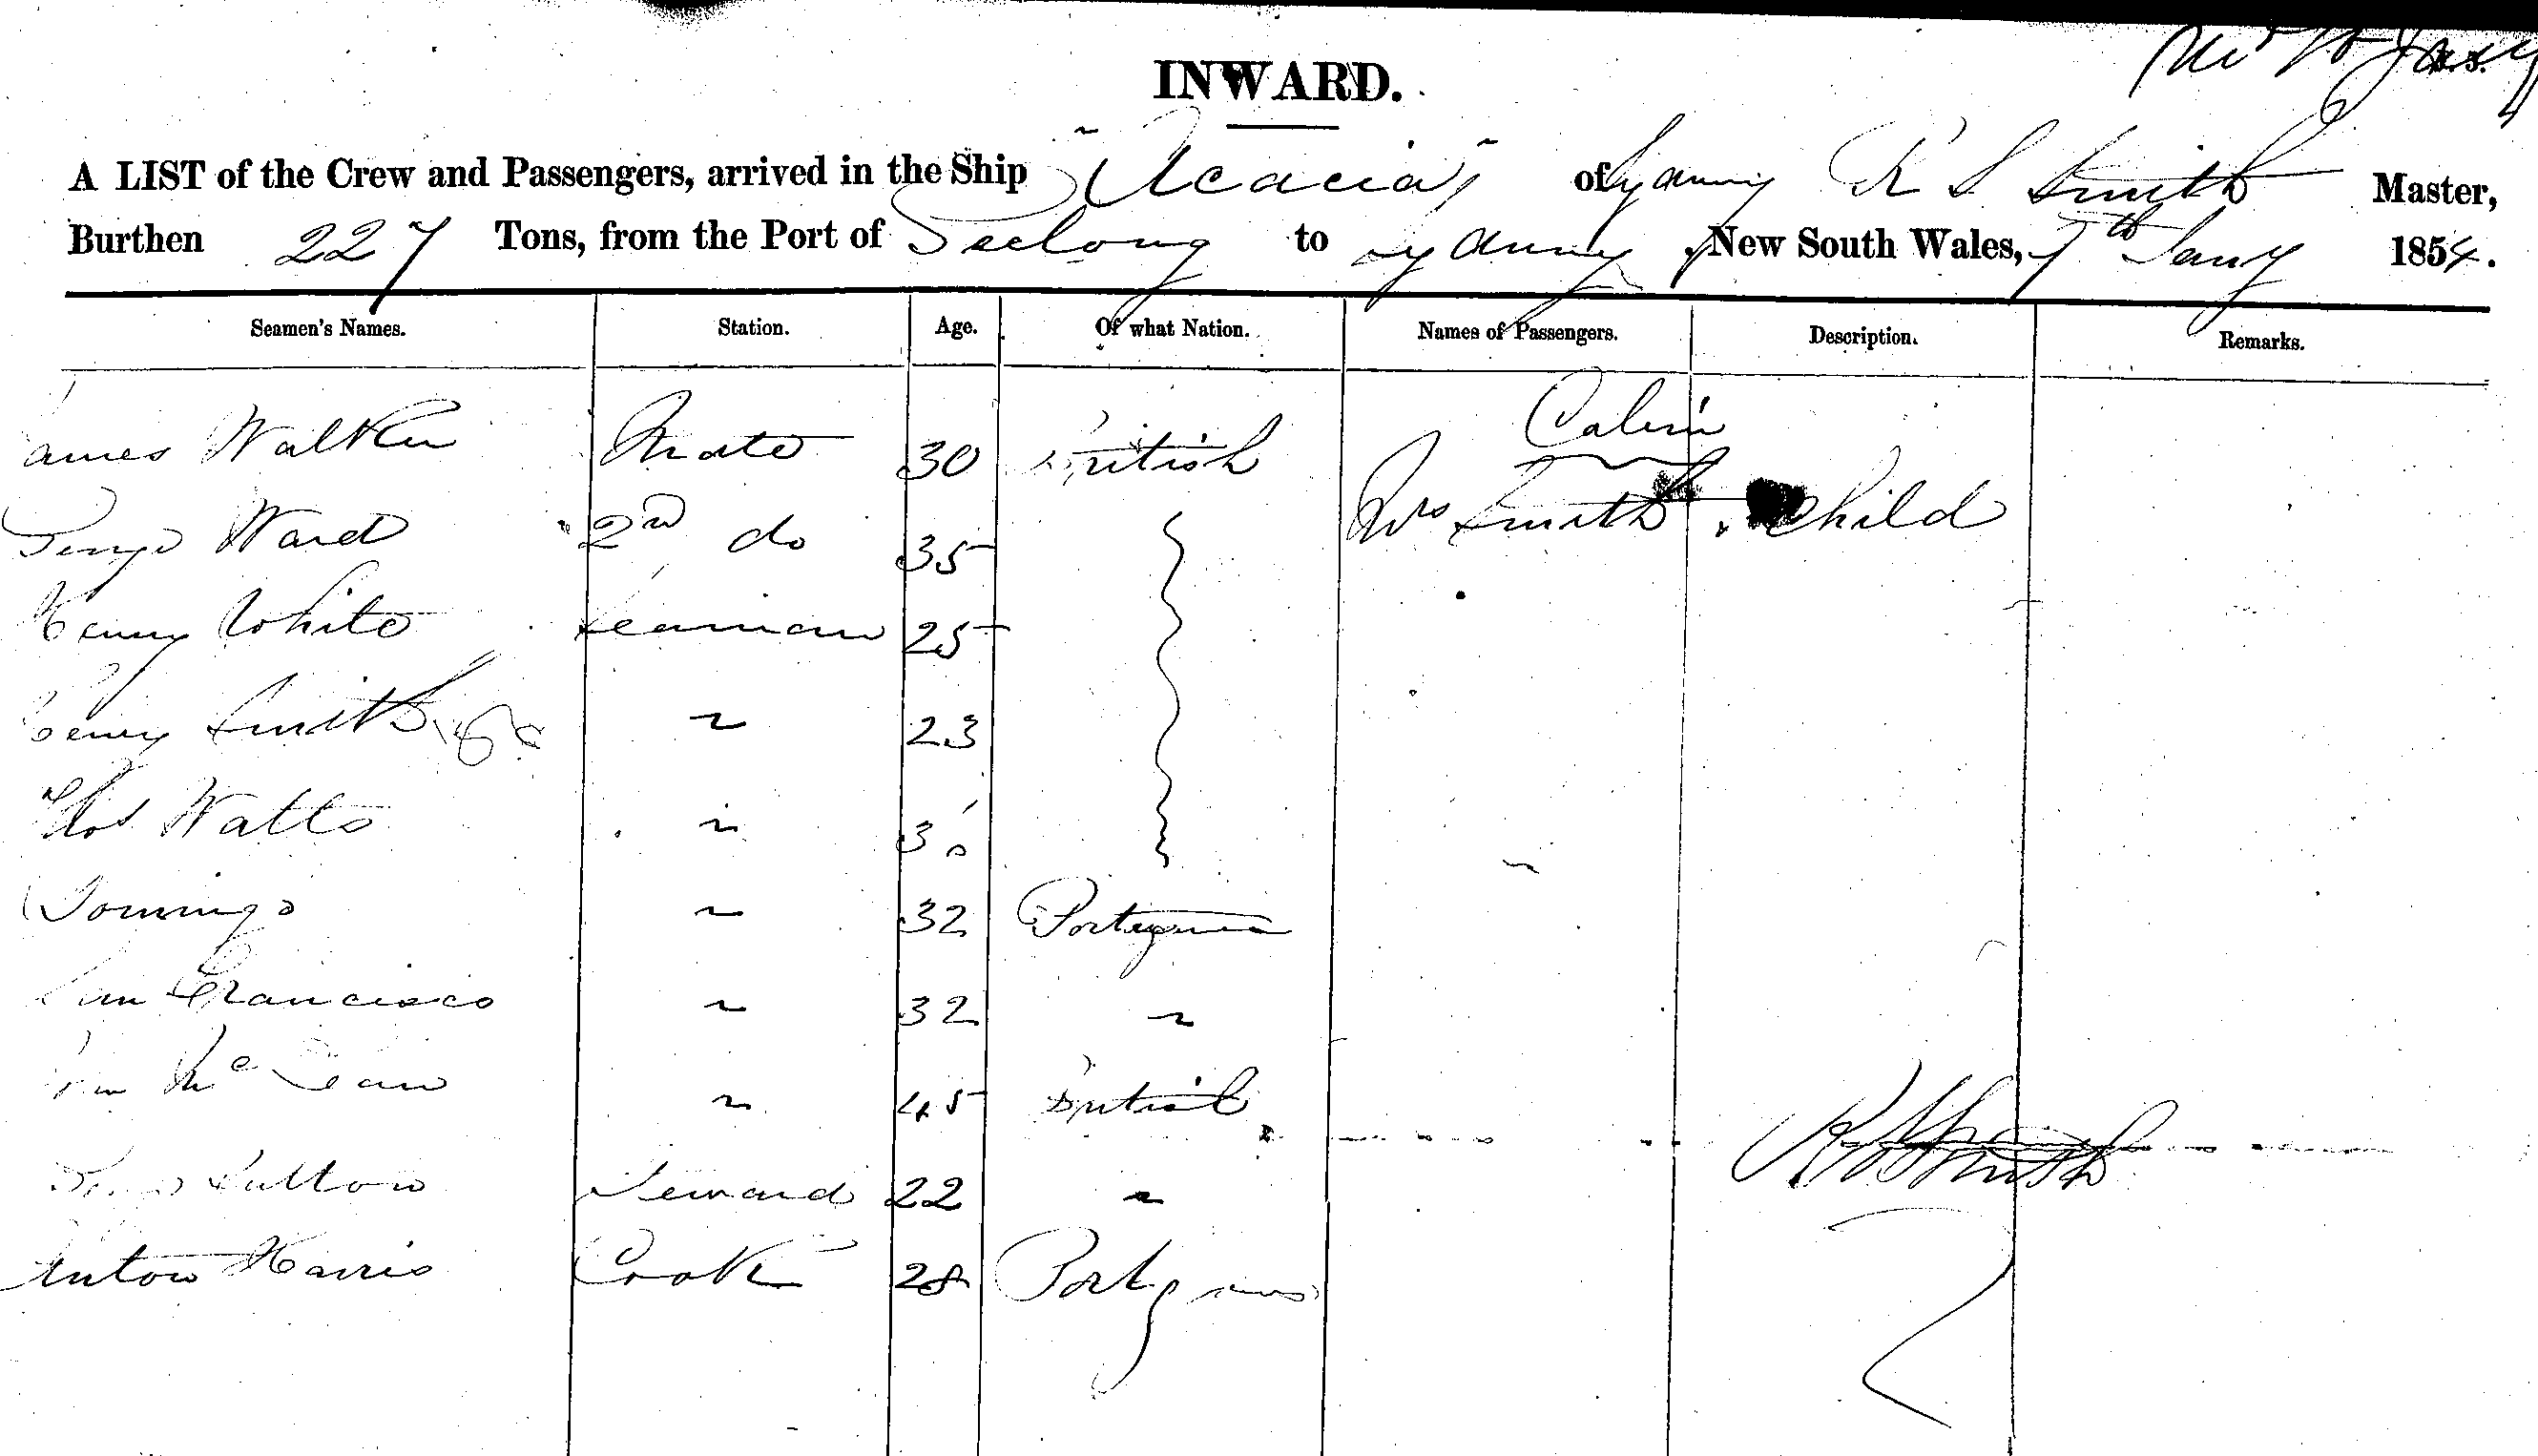 INWARD.
A LIST of the Crew and Passengers, arrived in the Ship "Acacia" of Sydney R S Smith Master,
Burthen 227 Tons, from the Port of Geelong to Sydney, New South Wales, 7th Jany 1854.
Seamen's Names. Station. Age. Of what Nation. Names of Passengers. Description. Remarks.
Cabin
James Walker Mate 30 British
George Ward 2nd do 35 Mrs Smith & Child
Henry White Seaman 25
Henry Smith " 23
Thos Watts " 30
Domingo " 32 Portuguese
San Francisco " 32 "
Mc Lean " 45 British
Sutton Steward 22 "
Anton Harris Cook 28 Portuguese
R S Smith